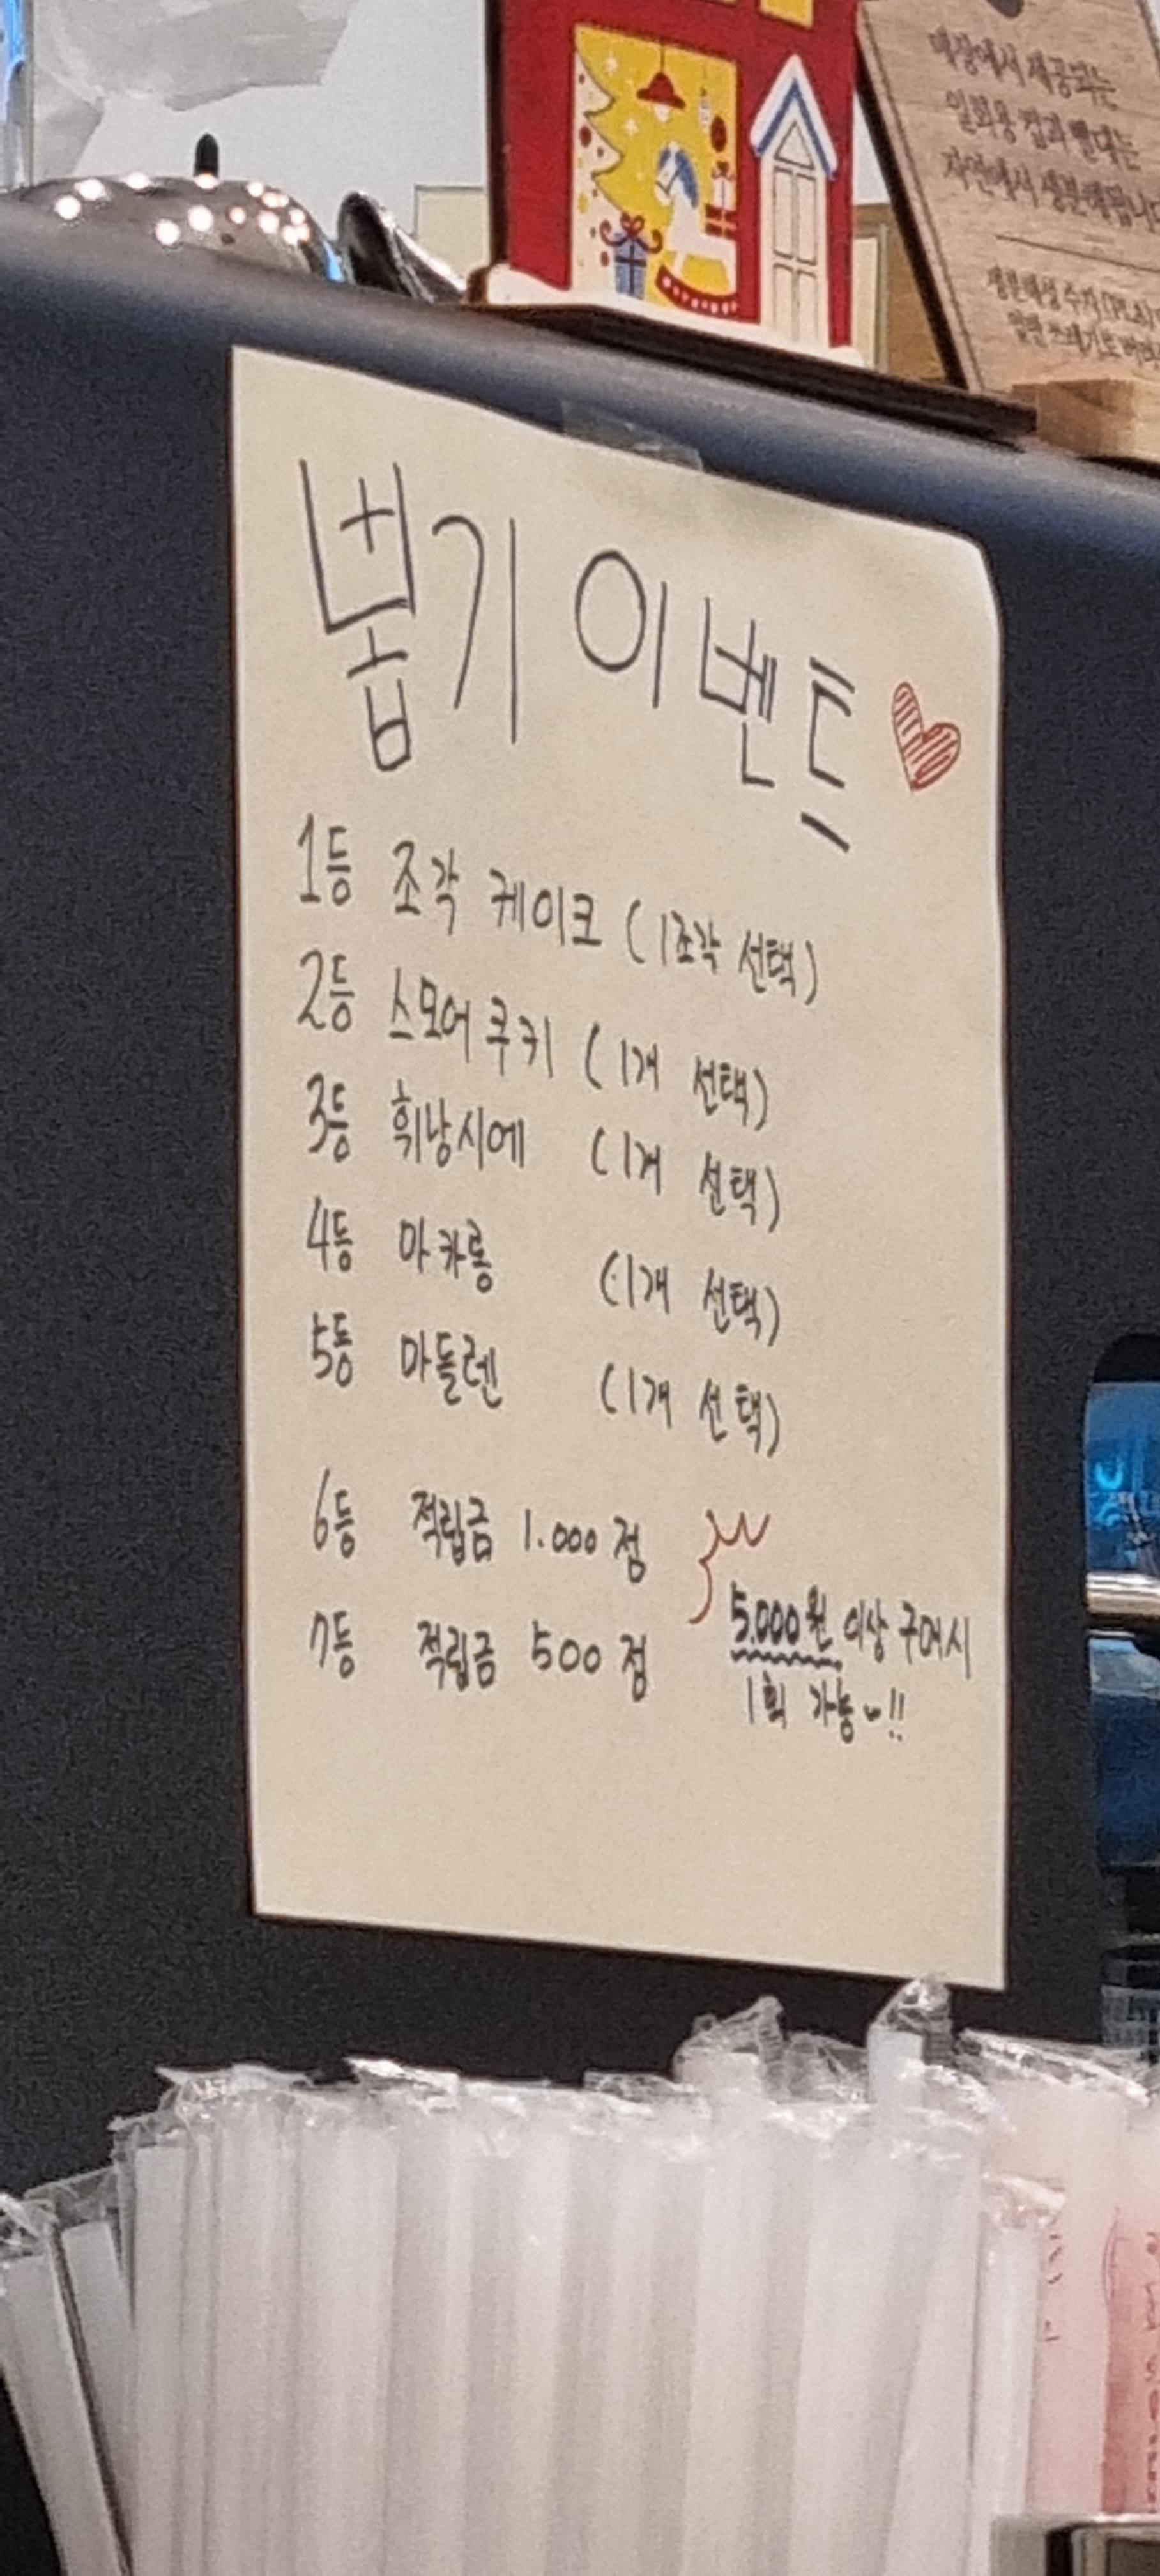 매장에서 제공되는
일회용 컵과 빨대는
자연에서 생분해됩니다
생분해성 수지(PLA)
일반 쓰레기로
뽑기 이벤트
1등 조각 케이크 (1조각 선택)
2등 스모어 쿠키 (1개 선택)
3등 휘낭시에 (1개 선택)
4등 마카롱 (1개 선택)
5등 마들렌 (1개 선택)
6등 적립금 1.000 점
7등 적립금 500 점
5.000원 이상 구매시
1회 가능~!!